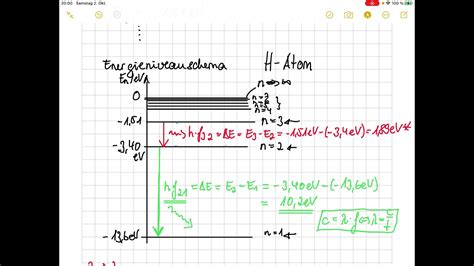 20:00 Samstag 2. Okt.
100 %
Energieniveauschema H-Atom
En/eV
n→∞
0
n=7
n=4
-1,51 n=3
h·f32 = ΔE = E3-E2 = -1,51eV-(-3,4eV) = 1,89eV
-3,40 eV n=2
h·f21 = ΔE = E2-E1 = -3,40eV-(-13,6eV)
= 10,2eV
c=λ·f ⇔ λ=c/f
-13,6eV n=1